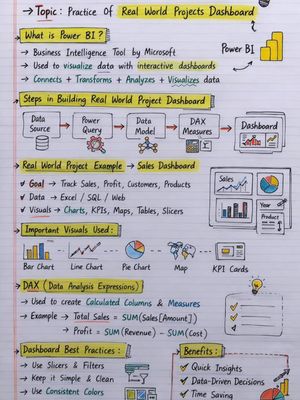 → Topic : Practice Of Real World Projects Dashboard
→ What is Power BI ? →
→ Business Intelligence Tool by Microsoft
→ Used to visualize data with interactive dashboards
→ Connects + Transforms + Analyzes + Visualizes data
Power BI
→ Steps in Building Real World Project Dashboard
Data Source → Power Query → Data Model → DAX Measures → Dashboard
→ Real World Project Example → Sales Dashboard
✓ Goal → Track Sales, Profit, Customers, Products
✓ Data → Excel / SQL / Web
✓ Visuals → Charts, KPIs, Maps, Tables, Slicers
Sales
Year
Product
→ Important Visuals Used :
Bar Chart Line Chart Pie Chart Map KPI Cards
→ DAX (Data Analysis Expressions)
→ Used to create Calculated Columns & Measures
→ Example → Total Sales = SUM(Sales[Amount])
→ Profit = SUM(Revenue) − SUM(Cost)
→ Dashboard Best Practices :
→ Use Slicers & Filters
→ Keep it Simple & Clean
→ Use Consistent Colors
→ Benefits :
✓ Quick Insights
✓ Data-Driven Decisions
✓ Time Saving